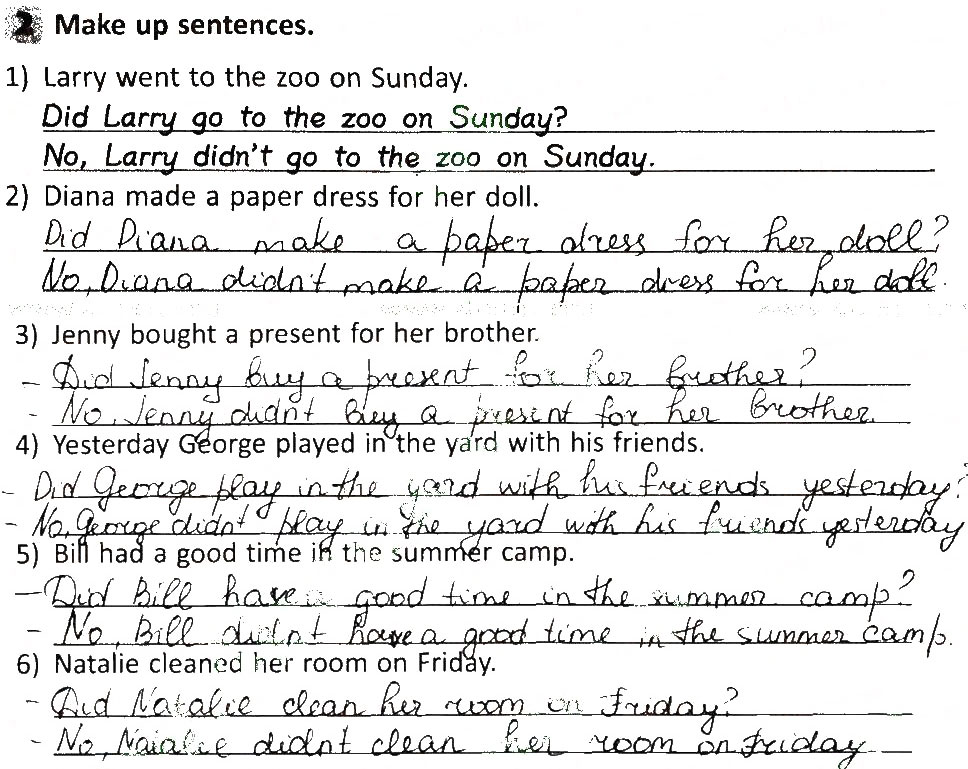 2 Make up sentences.
1) Larry went to the zoo on Sunday.
Did Larry go to the zoo on Sunday?
No, Larry didn't go to the zoo on Sunday.
2) Diana made a paper dress for her doll.
Did Diana make a paper dress for her doll?
No, Diana didn't make a paper dress for her doll.
3) Jenny bought a present for her brother.
- Did Jenny buy a present for her brother?
- No, Jenny didn't buy a present for her brother.
4) Yesterday George played in the yard with his friends.
- Did George play in the yard with his friends yesterday?
- No, George didn't play in the yard with his friends yesterday
5) Bill had a good time in the summer camp.
- Did Bill have a good time in the summer camp?
- No, Bill didn't have a good time in the summer camp.
6) Natalie cleaned her room on Friday.
- Did Natalie clean her room on Friday?
- No, Natalie didn't clean her room on Friday